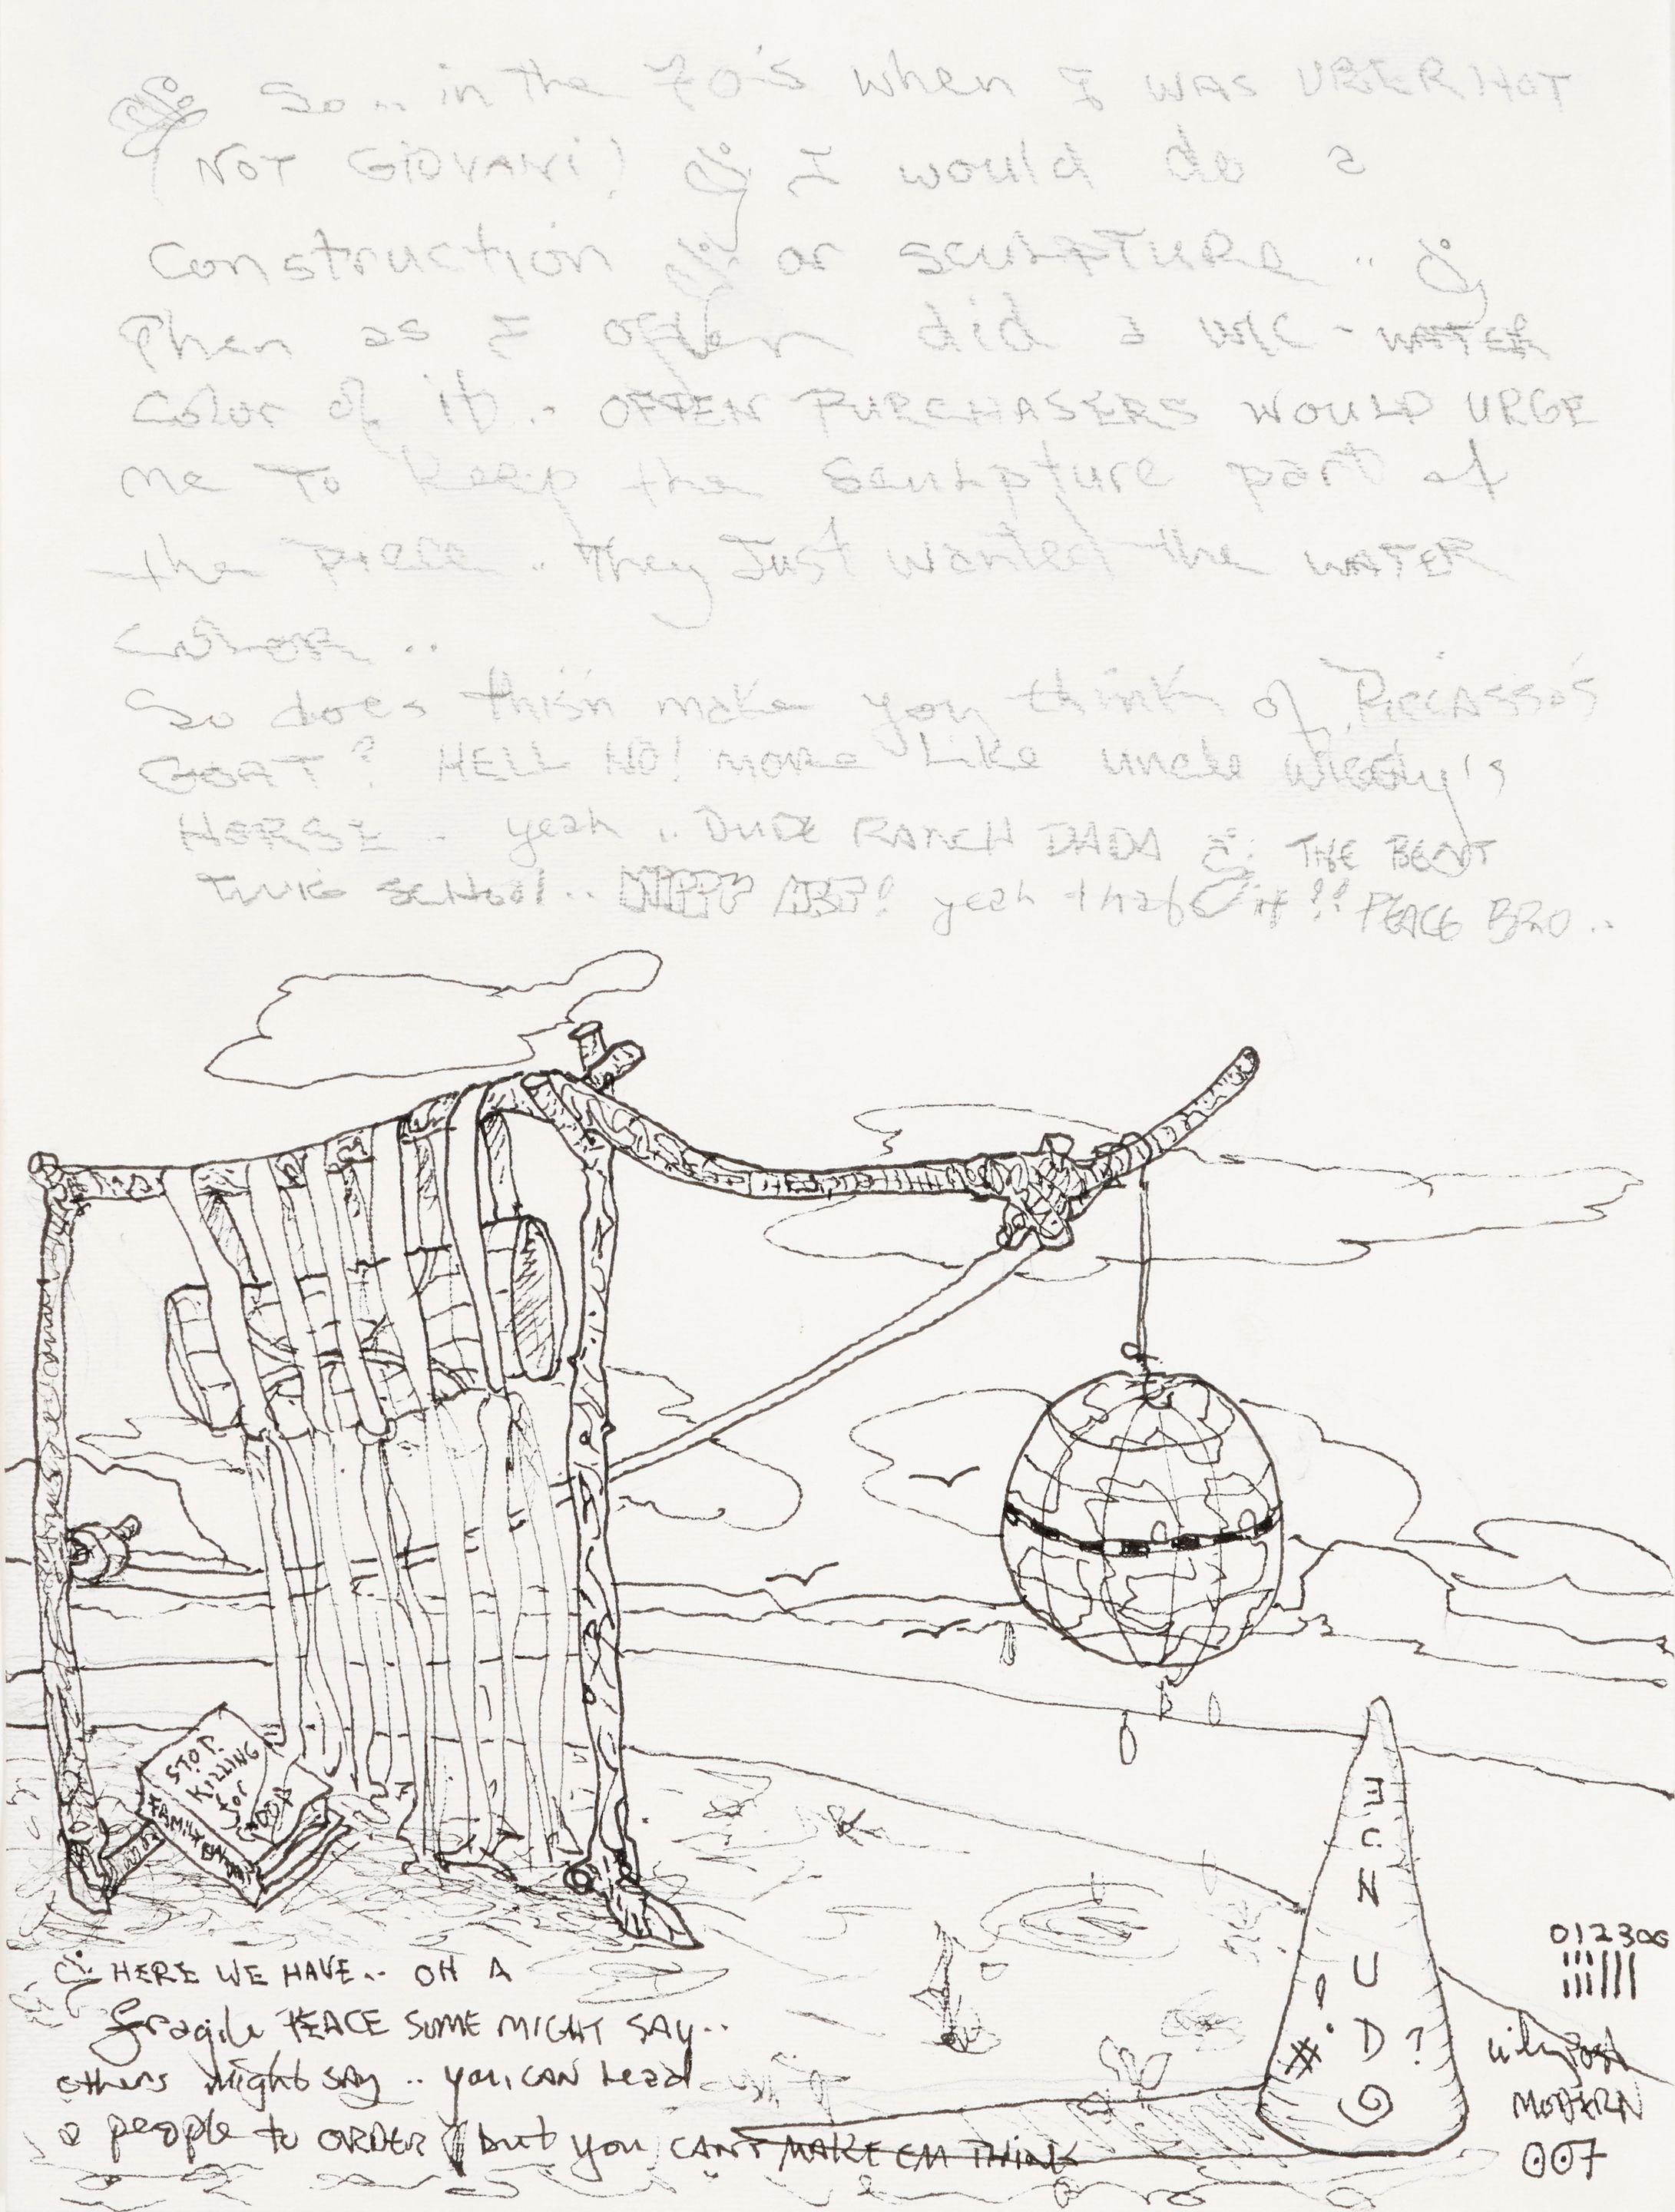 So... in the 70's when I WAS UBER HOT
(NOT GIOVANI) I would do a
Construction or SCULPTURE ..
Then as I often did a W/C - WATER
Color of it .. OFTEN PURCHASERS WOULD URGE
me To keep the Sculpture part of
the Piece .. They Just wanted the WATER
COLOR ..
So does this'n make you think of PICCASSO'S
GOAT? HELL NO! more Like uncle
HORSE .. yeah .. DUDE RANCH DADA THE BENT
TWIG SCHOOL .. HIPPY ART! yeah that's it!! PEACE BRO ..
STOP
KILLING
for
FAMILY
ECNUD?
#!
012306
HERE WE HAVE .. OH A
fragile PEACE SOME MIGHT SAY ..
others might say .. you CAN Lead
a people to ORDER but you CAN'T MAKE EM THINK
MODERN
007